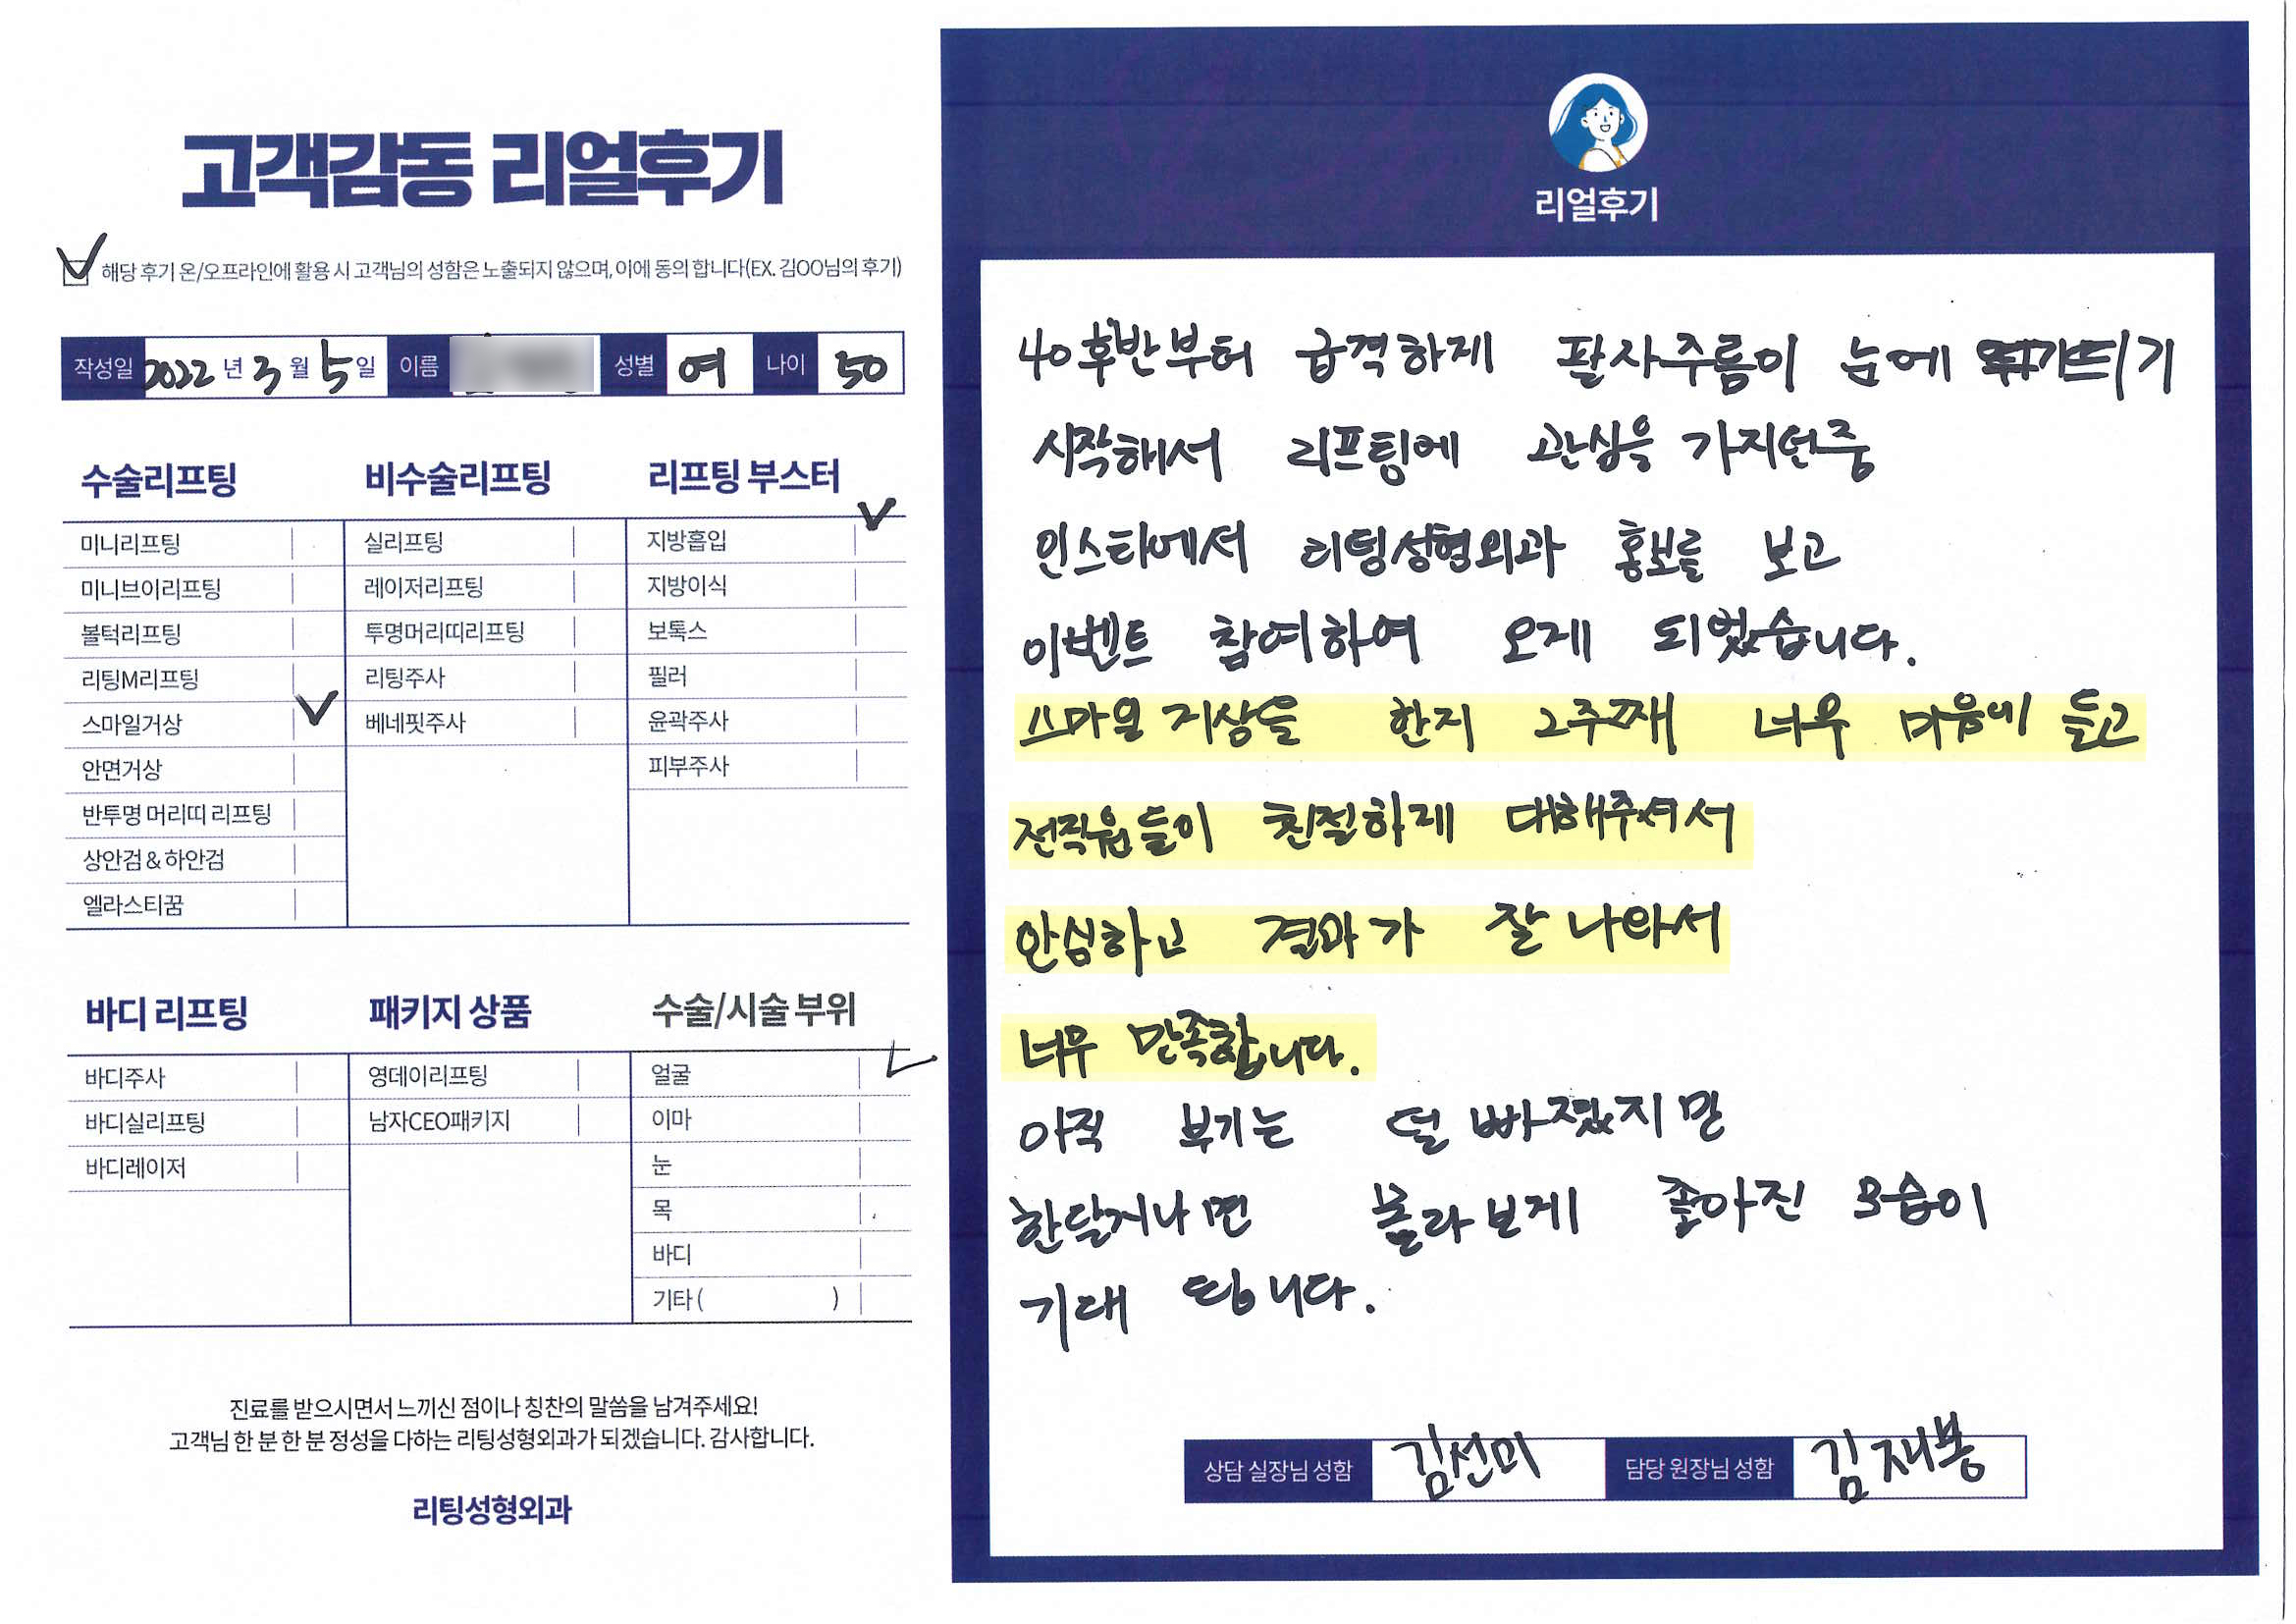 고객감동 리얼후기
해당 후기 온/오프라인에 활용 시 고객님의 성함은 노출되지 않으며, 이에 동의 합니다(EX. 김OO님의 후기)
작성일 2022 년 3 월 5 일 이름 성별 여 나이 50
수술리프팅
미니리프팅
미니브이리프팅
볼턱리프팅
리팅M리프팅
스마일거상
안면거상
반투명 머리띠 리프팅
상안검 & 하안검
엘라스티꿈
비수술리프팅
실리프팅
레이저리프팅
투명머리띠리프팅
리팅주사
베네핏주사
리프팅 부스터
지방흡입
지방이식
보톡스
필러
윤곽주사
피부주사
바디 리프팅
바디주사
바디실리프팅
바디레이저
패키지 상품
영데이리프팅
남자CEO패키지
수술/시술 부위
얼굴
이마
눈
목
바디
기타 ( )
진료를 받으시면서 느끼신 점이나 칭찬의 말씀을 남겨주세요!
고객님 한 분 한 분 정성을 다하는 리팅성형외과가 되겠습니다. 감사합니다.
리팅성형외과
리얼후기
40후반부터 급격하게 팔자주름이 눈에 띄기
시작해서 리프팅에 관심을 가지던중
인스타에서 리팅성형외과 홍보를 보고
이벤트 참여하여 오게 되었습니다.
스마일 거상을 한지 2주째 너무 마음에 들고
전직원들이 친절하게 대해주셔서
안심하고 결과가 잘 나와서
너무 만족합니다.
아직 부기는 덜 빠졌지만
한달지나면 몰라보게 좋아진 모습이
기대 됩니다.
상담 실장님 성함 김선미 담당 원장님 성함 김재봉